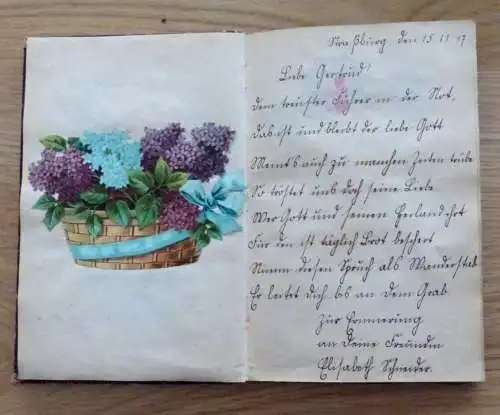 Straßburg, den 15.11.17
Liebe Gertrud!
Dein treuster Führer in der Not,
das ist und bleibt der liebe Gott
Meint's auch zu manchen Zeiten trübe
So tröstet uns doch seine Liebe
Wer Gott und seinen Heiland ehrt
Für den ist täglich Brot beschert
Nimm diesen Spruch als Wanderstab
Er leitet Dich bis an dem Grab
Zur Erinnerung
an Deine Freundin
Elisabeth Schneider.